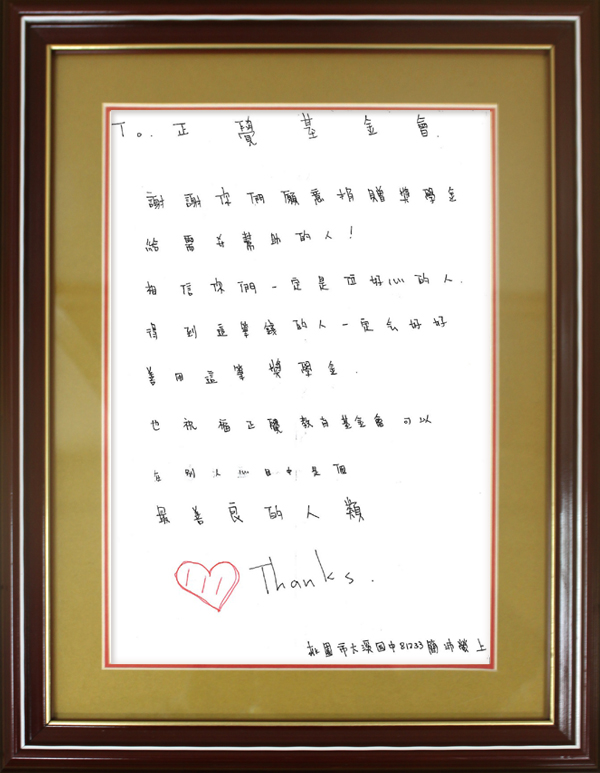 To. 正覺基金會.
謝謝你們願意捐贈獎學金
給需要幫助的人!
相信你們一定是位好心的人.
得到這筆錢的人一定會好好
善用這筆獎學金.
也祝福正覺教育基金會可以
在別人心目中是個
最善良的人類
Thanks.
桃園市大溪國中81233簡 上